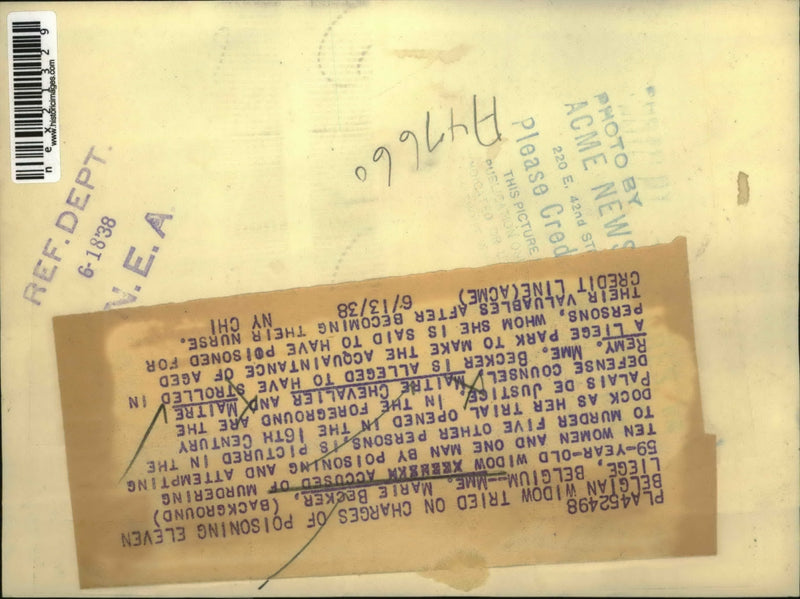 nex21329
www.historicimages.com
REF. DEPT.
6-18'38
N.E.A.
A47660
PHOTO BY
ACME NEWS
220 E. 42nd ST
Please Cred
THIS PICTURE
PLA452498
BELGIAN WIDOW TRIED ON CHARGES OF POISONING ELEVEN
LIEGE, BELGIUM--MME. MARIE BECKER, (BACKGROUND)
59-YEAR-OLD WIDOW ACCUSED OF MURDERING
TEN WOMEN AND ONE MAN BY POISONING AND ATTEMPTING
TO MURDER FIVE OTHER PERSONS, IS PICTURED IN THE
DOCK AS HER TRIAL OPENED IN THE 16TH CENTURY
PALAIS DE JUSTICE. IN THE FOREGROUND ARE THE
DEFENSE COUNSEL MAITRE CHEVALIER AND MAITRE
REMY. MME. BECKER IS ALLEGED TO HAVE STROLLED IN
A LIEGE PARK TO MAKE THE ACQUAINTANCE OF AGED
PERSONS, WHOM SHE IS SAID TO HAVE POISONED FOR
THEIR VALUABLES AFTER BECOMING THEIR NURSE.
CREDIT LINE(ACME) 6/13/38 NY CHI